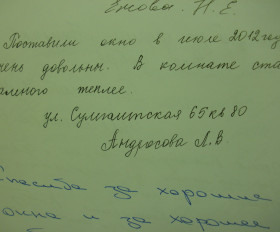 Н. Е.
Поставили окно в июле 2012 год
довольны. В комнате ста
теплее.
ул. Сумгаитская 65 кв 80
Андросова Л.В
Спасибо за хорошие
окна и за хорошее